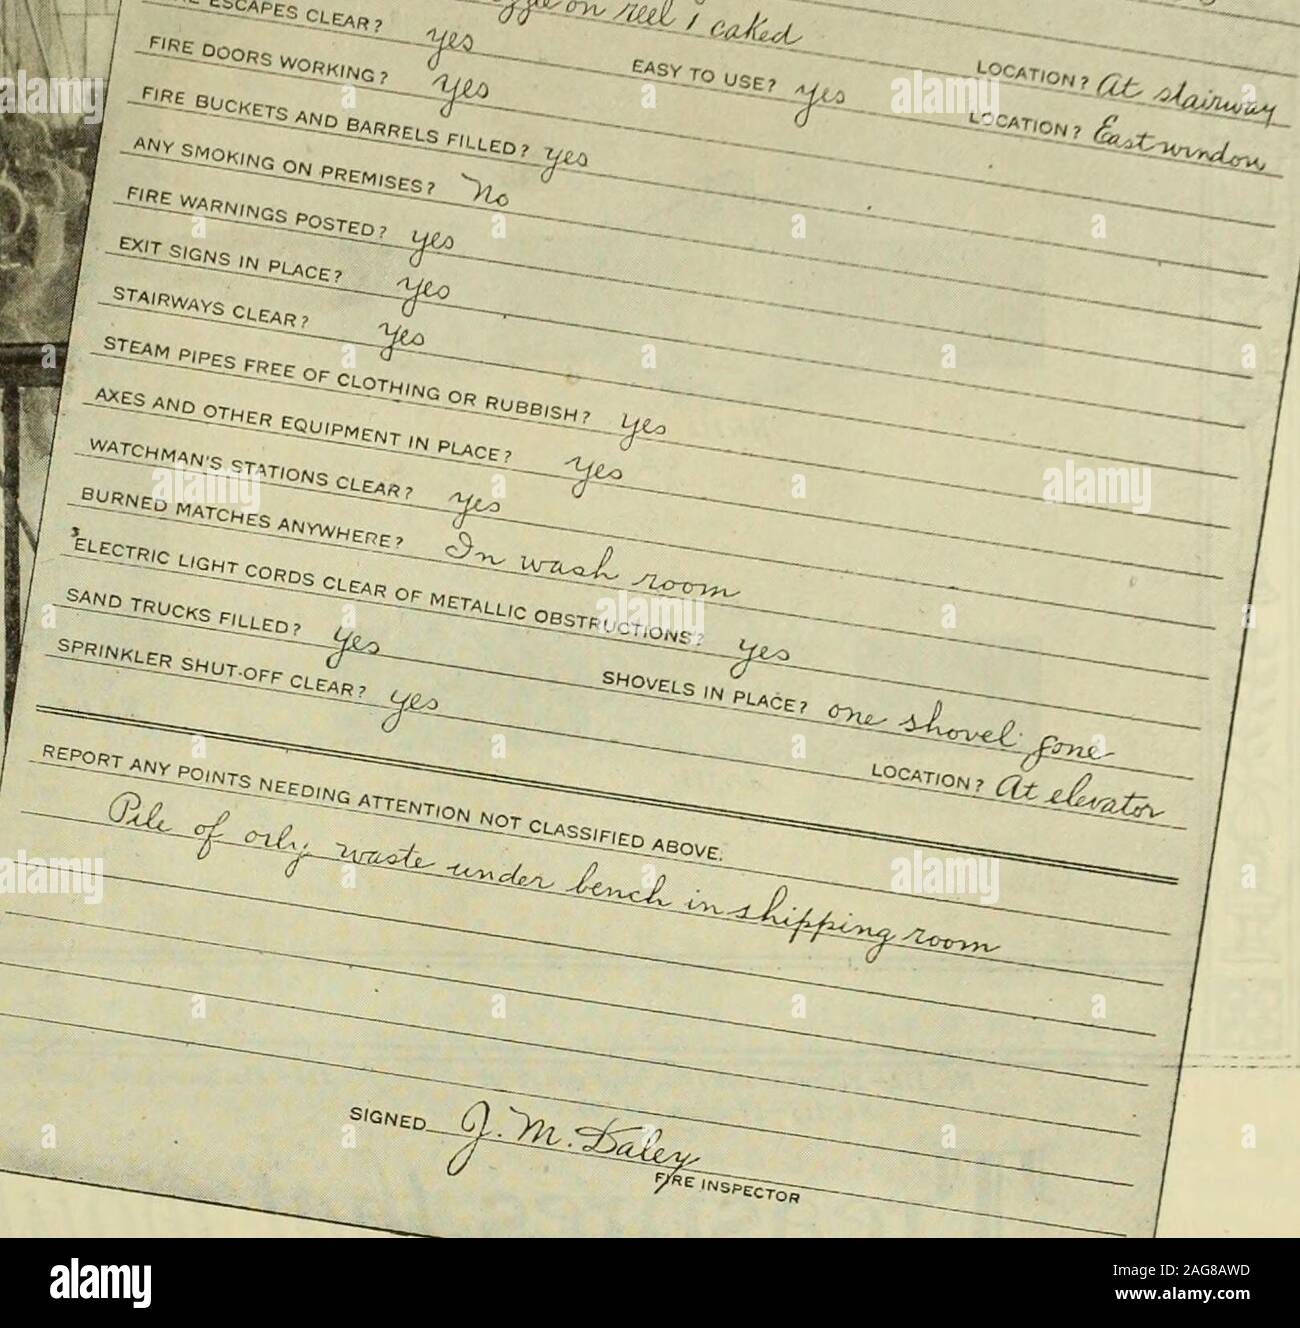 on reel 1 caked
ESCAPES CLEAR? yes EASY TO USE? yes LOCATION? At stairway
FIRE DOORS WORKING? yes LOCATION? East window
FIRE BUCKETS AND BARRELS FILLED? yes
ANY SMOKING ON PREMISES? No
FIRE WARNINGS POSTED? yes
EXIT SIGNS IN PLACE? yes
STAIRWAYS CLEAR? yes
STEAM PIPES FREE OF CLOTHING OR RUBBISH? yes
AXES AND OTHER EQUIPMENT IN PLACE? yes
WATCHMAN'S STATIONS CLEAR? yes
BURNED MATCHES ANYWHERE? In wash room
ELECTRIC LIGHT CORDS CLEAR OF METALLIC OBSTRUCTIONS? yes
SAND TRUCKS FILLED? yes SHOVELS IN PLACE? one shovel gone
SPRINKLER SHUT-OFF CLEAR? yes LOCATION? At elevator
REPORT ANY POINTS NEEDING ATTENTION NOT CLASSIFIED ABOVE:
Pile of oily waste under bench in shipping room
SIGNED J. M. Daley
FIRE INSPECTOR
alamy
Image ID: 2AG8AWD
www.alamy.com